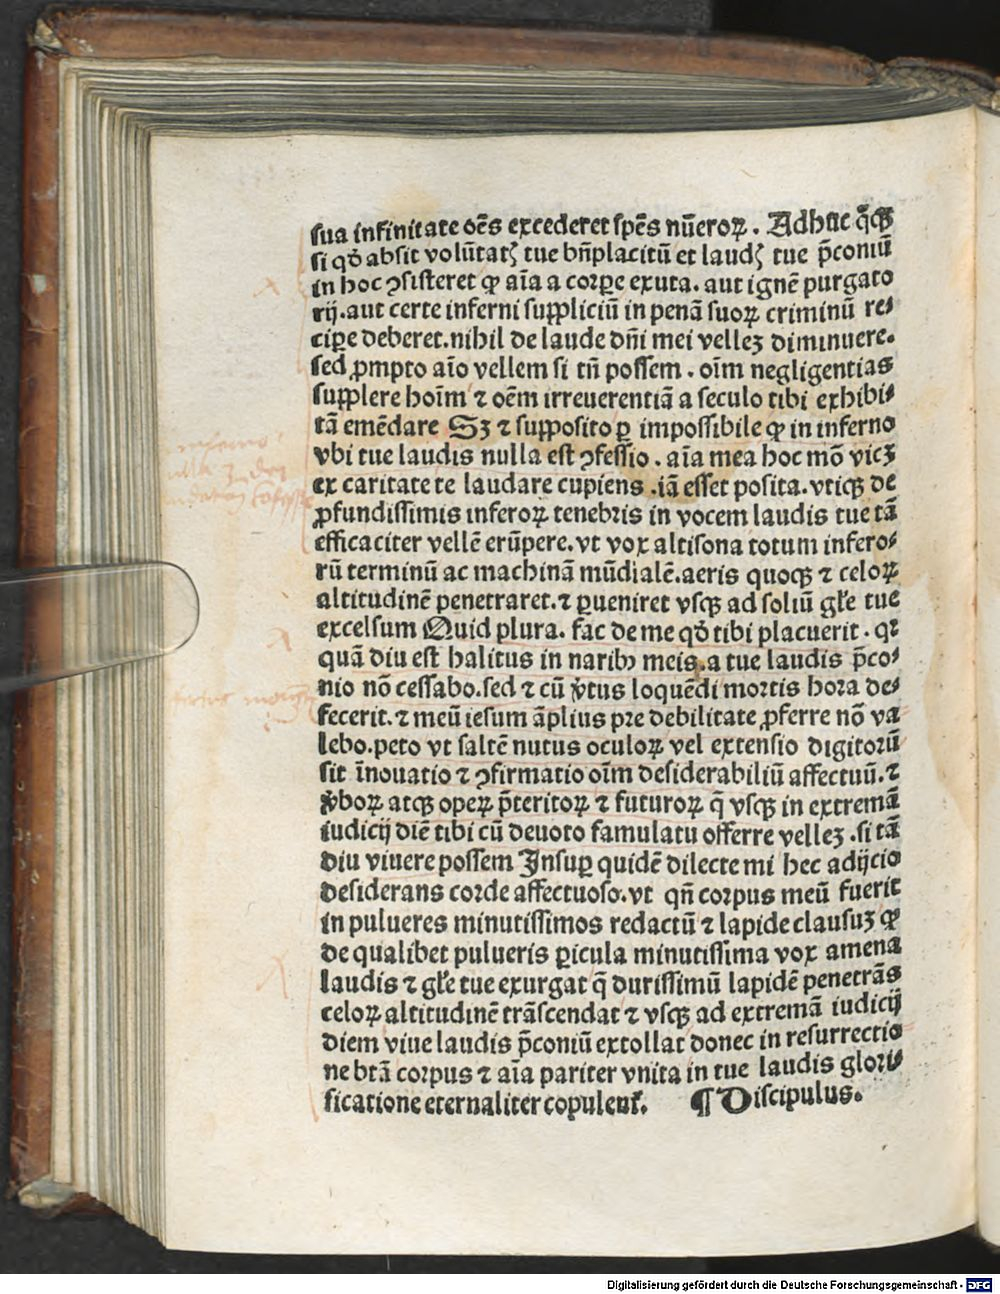 sua infinitate oēs excederet spēs nūeroꝝ. Adhuc q̄qꝫ
si qḋ absit volūtatꝭ tue bn̄placitū et laudꝭ tue p̄coniū
in hoc ꝯsisteret ꝙ aīa a corꝑe exuta. aut ignē purgato
rij. aut certe inferni suppliciū in penā suoꝝ criminū re⸗
ciꝑe deberet. nihil de laude dn̄i mei velleꝫ diminuere.
sed ꝓmpto aīo vellem si tn̄ possem. oīm negligentias
supplere hoīm ⁊ oēm irreuerentiā a seculo tibi exhibi⸗
tā emēdare Sꝫ ⁊ supposito ꝑ impossibile ꝙ in inferno
vbi tue laudis nulla est ꝯfessio. aīa mea hoc mō vicꝫ
ex caritate te laudare cupiens. iā esset posita. vtiqꝫ de
ꝓfundissimis inferoꝝ tenebris in vocem laudis tue tā
efficaciter vellē erūpere. vt vox altisona totum infero⸗
rū terminū ac machinā mūdialē. aeris quoqꝫ ⁊ celoꝝ
altitudinē penetraret. ⁊ ꝑueniret vsqꝫ ad soliū gl̄e tue
excelsum Quid plura. fac de me qḋ tibi placuerit. qꝛ
quā diu est halitus in naribꝰ meis. a tue laudis p̄co⸗
nio nō cessabo. sed ⁊ cū v̇tus loquēdi mortis hora de⸗
fecerit. ⁊ meū iesum āplius pre debilitate ꝓferre nō va
lebo. peto vt saltē nutus oculoꝝ vel extensio digitorū
sit īnouatio ⁊ ꝯfirmatio oīm desiderabiliū affectuū. ⁊
v̇boꝝ atqꝫ opeꝝ p̄teritoꝝ ⁊ futuroꝝ q̄ vsqꝫ in extremā
iudicij diē tibi cū deuoto famulatu offerre velleꝫ. si tā
diu viuere possem Insuꝑ quidē dilecte mi hec adijcio
desiderans corde affectuoso. vt qn̄ corpus meū fuerit
in pulueres minutissimos redactū ⁊ lapide clausuꝫ ꝙ
de qualibet pulueris ꝑicula minutissima vox amena
laudis ⁊ gl̄e tue exurgat q̄ durissimū lapidē penetrās
celoꝝ altitudinē trāscendat ⁊ vsqꝫ ad extremā iudicij
diem viue laudis p̄coniū extollat donec in resurrectio
ne btā corpus ⁊ aīa pariter vnita in tue laudis glori⸗
ficatione eternaliter copulent᷑. ¶ Discipulus.
Digitalisierung gefördert durch die Deutsche Forschungsgemeinschaft - DFG